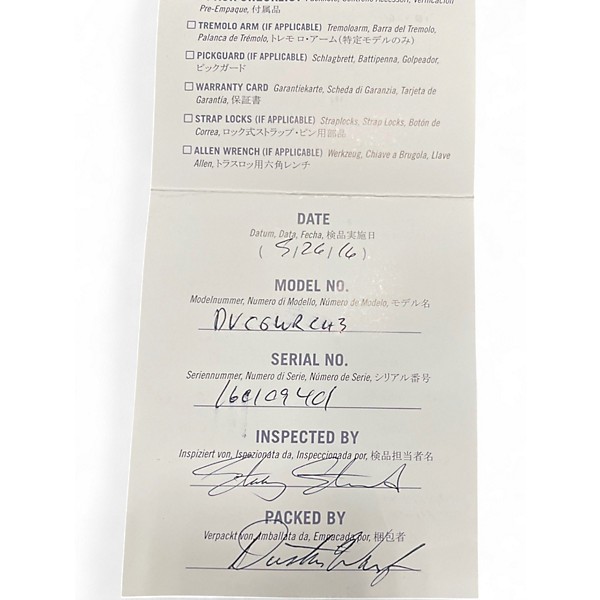 Pre-Empaque, 付属品
☐ TREMOLO ARM (IF APPLICABLE) Tremoloarm, Barra del Tremolo,
Palanca de Trémolo, トレモロ・アーム(特定モデルのみ)
☐ PICKGUARD (IF APPLICABLE) Schlagbrett, Battipenna, Golpeador,
ピックガード
☐ WARRANTY CARD Garantiekarte, Scheda di Garanzia, Tarjeta de
Garantía, 保証書
☐ STRAP LOCKS (IF APPLICABLE) Straplocks, Strap Locks, Botón de
Correa, ロック式ストラップ・ピン用部品
☐ ALLEN WRENCH (IF APPLICABLE) Werkzeug, Chiave a Brugola, Llave
Allen, トラスロッ用六角レンチ
DATE
Datum, Data, Fecha, 検品実施日
(5/26/16)
MODEL NO.
Modelnummer, Numero di Modello, Número de Modelo, モデル名
DVCGWRCH3
SERIAL NO.
Seriennummer, Numero di Serie, Número de Serie, シリアル番号
160109401
INSPECTED BY
Inspiziert von, Ispezionata da, Inspeccionada por, 検品担当者名
PACKED BY
Verpackt von, Imballata da, Empacada por, 梱包者